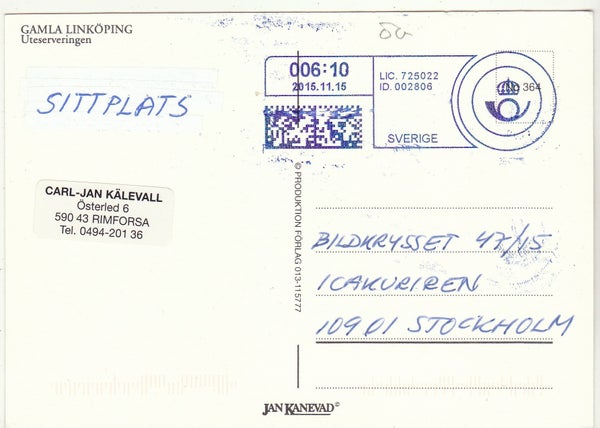 GAMLA LINKÖPING
Uteserveringen
006:10
2015.11.15
LIC. 725022
ID. 002806
SVERIGE
364
SITTPLATS
CARL-JAN KÄLEVALL
Österled 6
590 43 RIMFORSA
Tel. 0494-201 36
© PRODUKTION FÖRLAG 013-115777
BILDKRYSSET 47/15
ICAKURIREN
10901 STOCKHOLM
JAN KANEVAD©